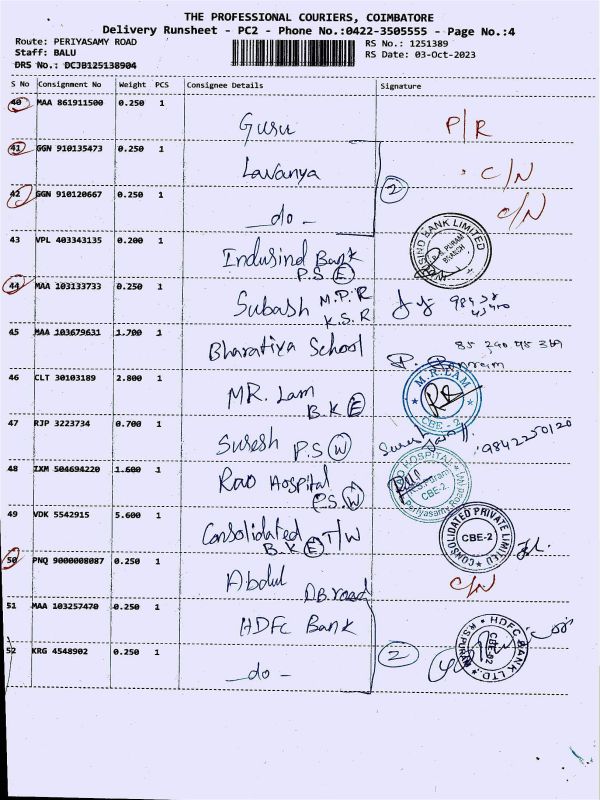 THE PROFESSIONAL COURIERS, COIMBATORE
Delivery Runsheet - PC2 - Phone No.:0422-3505555 - Page No.:4
Route: PERIYASAMY ROAD RS No.: 1251389
Staff: BALU RS Date: 03-Oct-2023
DRS No.: DCJB125138904
S No Consignment No Weight PCS Consignee Details Signature
40 MAA 861911500 0.250 1
Guru P/R
41 GGN 910135473 0.250 1
Lavanya C/N
42 GGN 910120667 0.250 1 2
-do- C/N
43 VPL 403343135 0.200 1
Indusind Bank
P.S E
INDUSIND BANK LIMITED
R.S PURAM
BRANCH
44 MAA 103133733 0.250 1
Subash M.P.R
K.S.R
45 MAA 103679631 1.700 1
Bharatiya School
46 CLT 30103189 2.800 1
MR. Lam
B.K E
M.R.LAM
CBE - 2
47 RJP 3223734 0.700 1
Suresh P.S W 9842250120
48 IXM 504694220 1.600 1
Rao Hospital
P.S. W
RAO HOSPITAL
R.S.Puram
CBE-2
Periyasamy Road
49 VDK 5542915 5.600 1
Consolidated T/W
B.K E
CONSOLIDATED PRIVATE LIMITED
CBE-2
50 PNQ 9000008087 0.250 1
Abdul C/N
DB road
51 MAA 103257470 0.250 1
HDFC Bank
52 KRG 4548902 0.250 1 2
-do-
HDFC BANK LTD.
R.S.PURAM
CBE-02